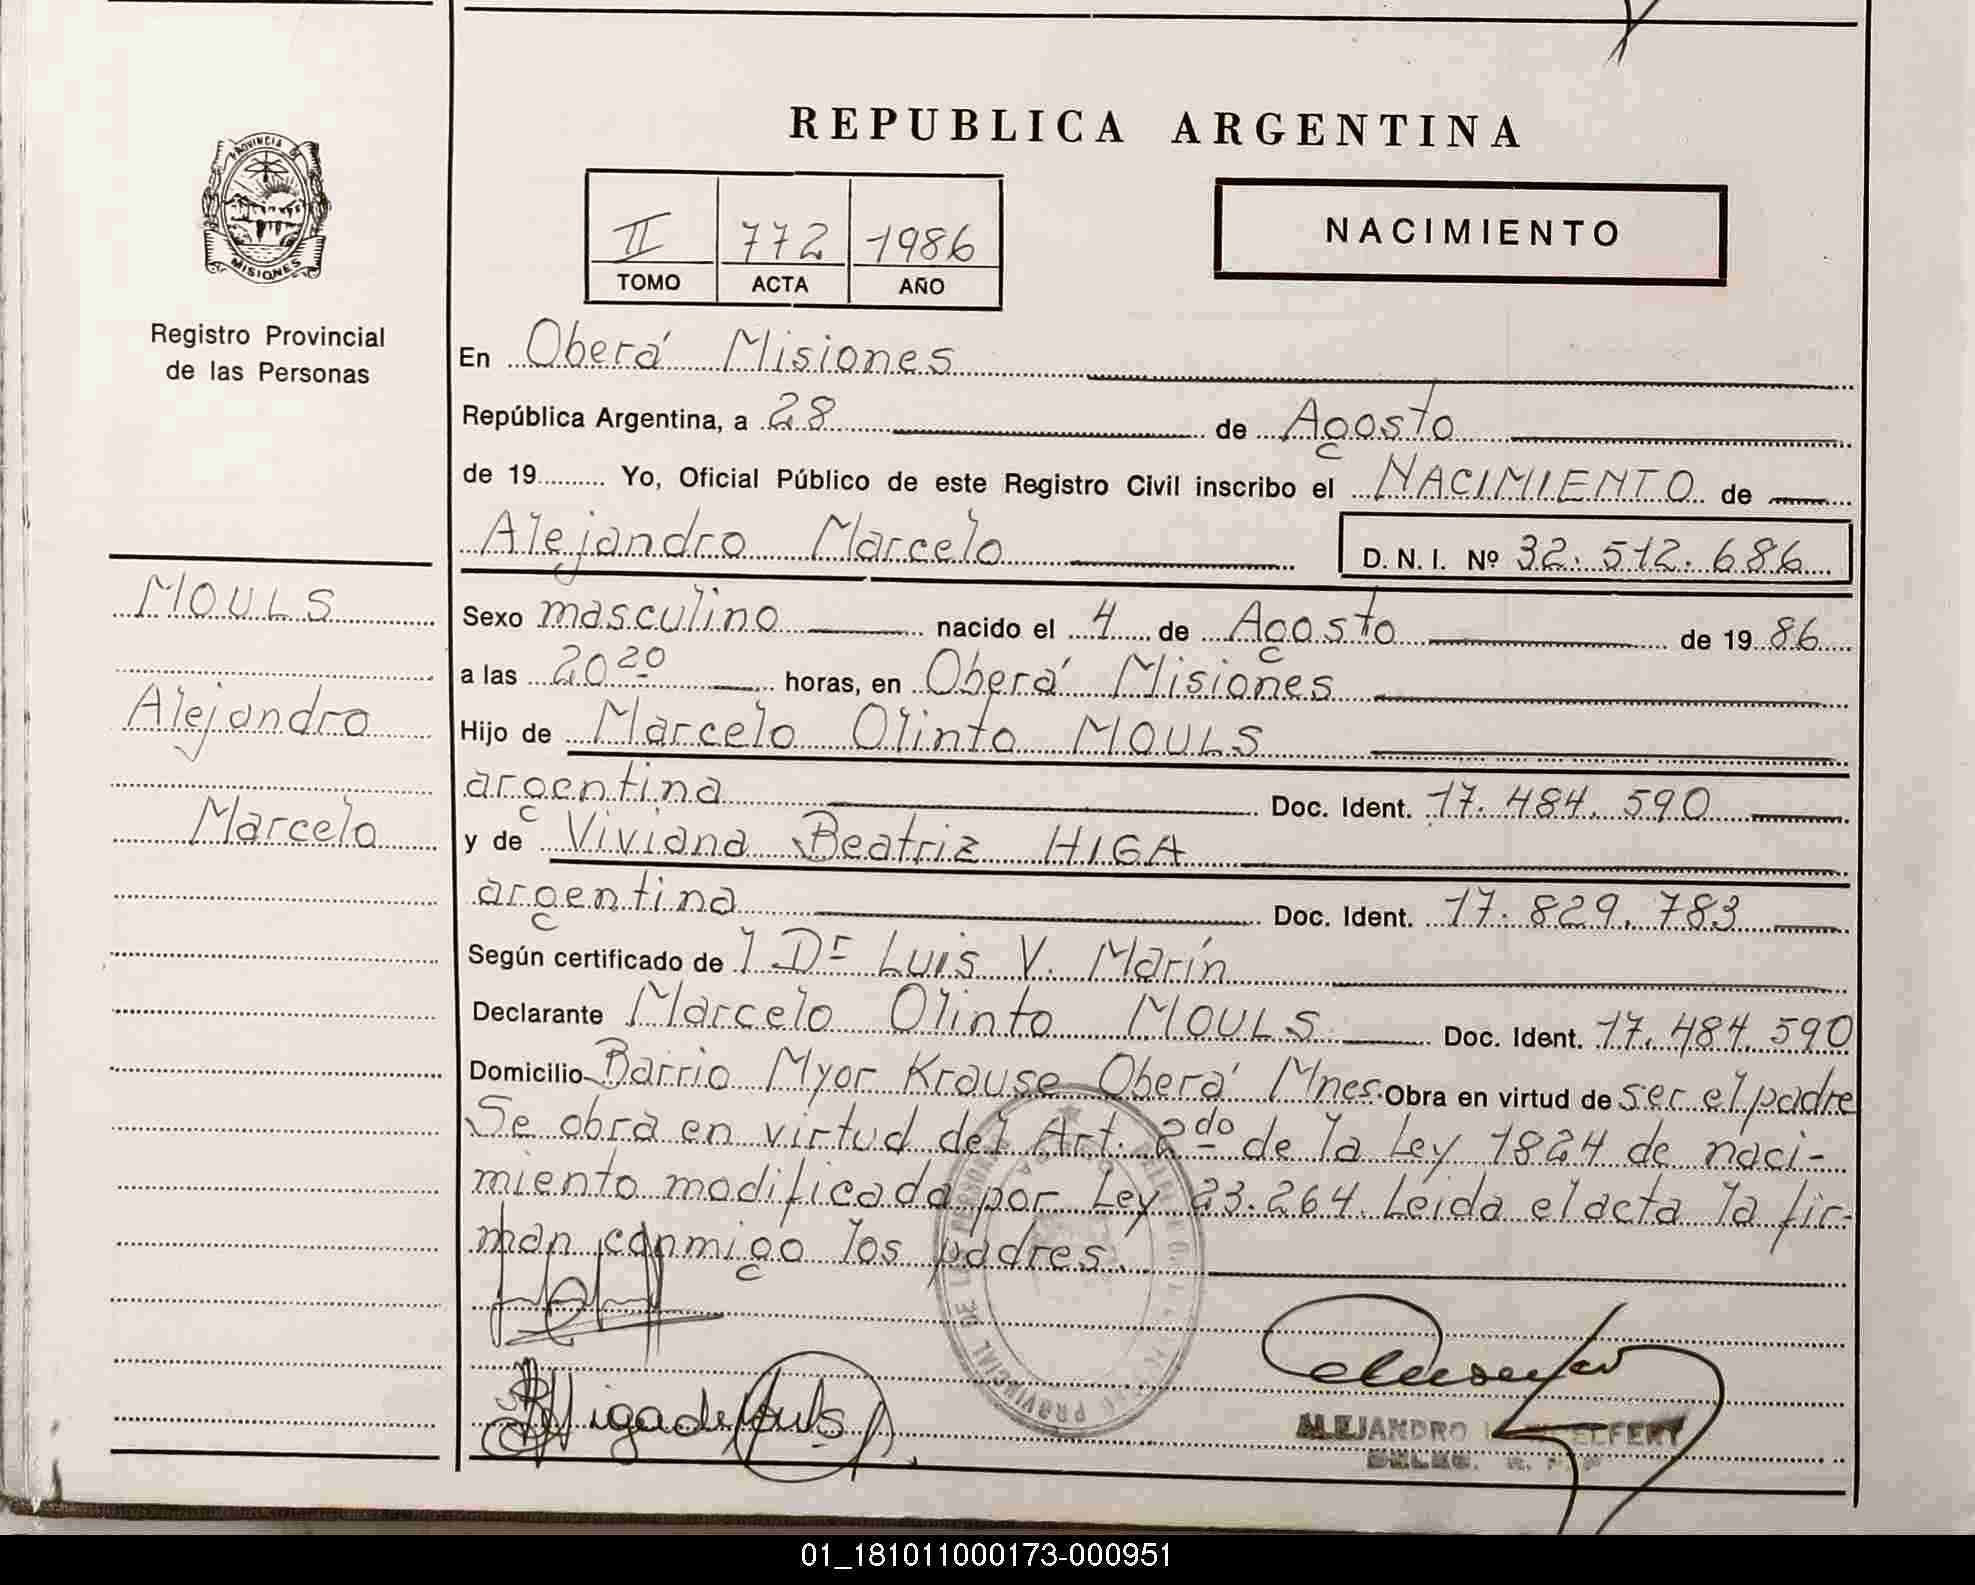 REPUBLICA ARGENTINA
PROVINCIA DE
MISIONES
II 772 1986
TOMO ACTA AÑO
NACIMIENTO
Registro Provincial
de las Personas
En Oberá Misiones
República Argentina, a 28 de Agosto
de 19 Yo, Oficial Público de este Registro Civil inscribo el NACIMIENTO de
Alejandro Marcelo D. N. I. Nº 32.512.686
MOULS
Alejandro
Marcelo
Sexo masculino nacido el 4 de Agosto de 19 86
a las 20 20 horas, en Oberá Misiones
Hijo de Marcelo Olinto MOULS
argentina Doc. Ident. 17.484.590
y de Viviana Beatriz HIGA
argentina Doc. Ident. 17.829.783
Según certificado de 1 Dr Luis V. Marín
Declarante Marcelo Olinto MOULS Doc. Ident. 17.484.590
Domicilio Barrio Myor Krause Oberá Mnes. Obra en virtud de ser el padre
Se obra en virtud del Art. 2do de la Ley 1824 de naci-
miento modificada por Ley 23.264. Leida el acta la fir-
man conmigo los padres.
PROVINCIAL DE LAS PERSONAS
Higa de Mouls
ALEJANDRO
01_181011000173-000951